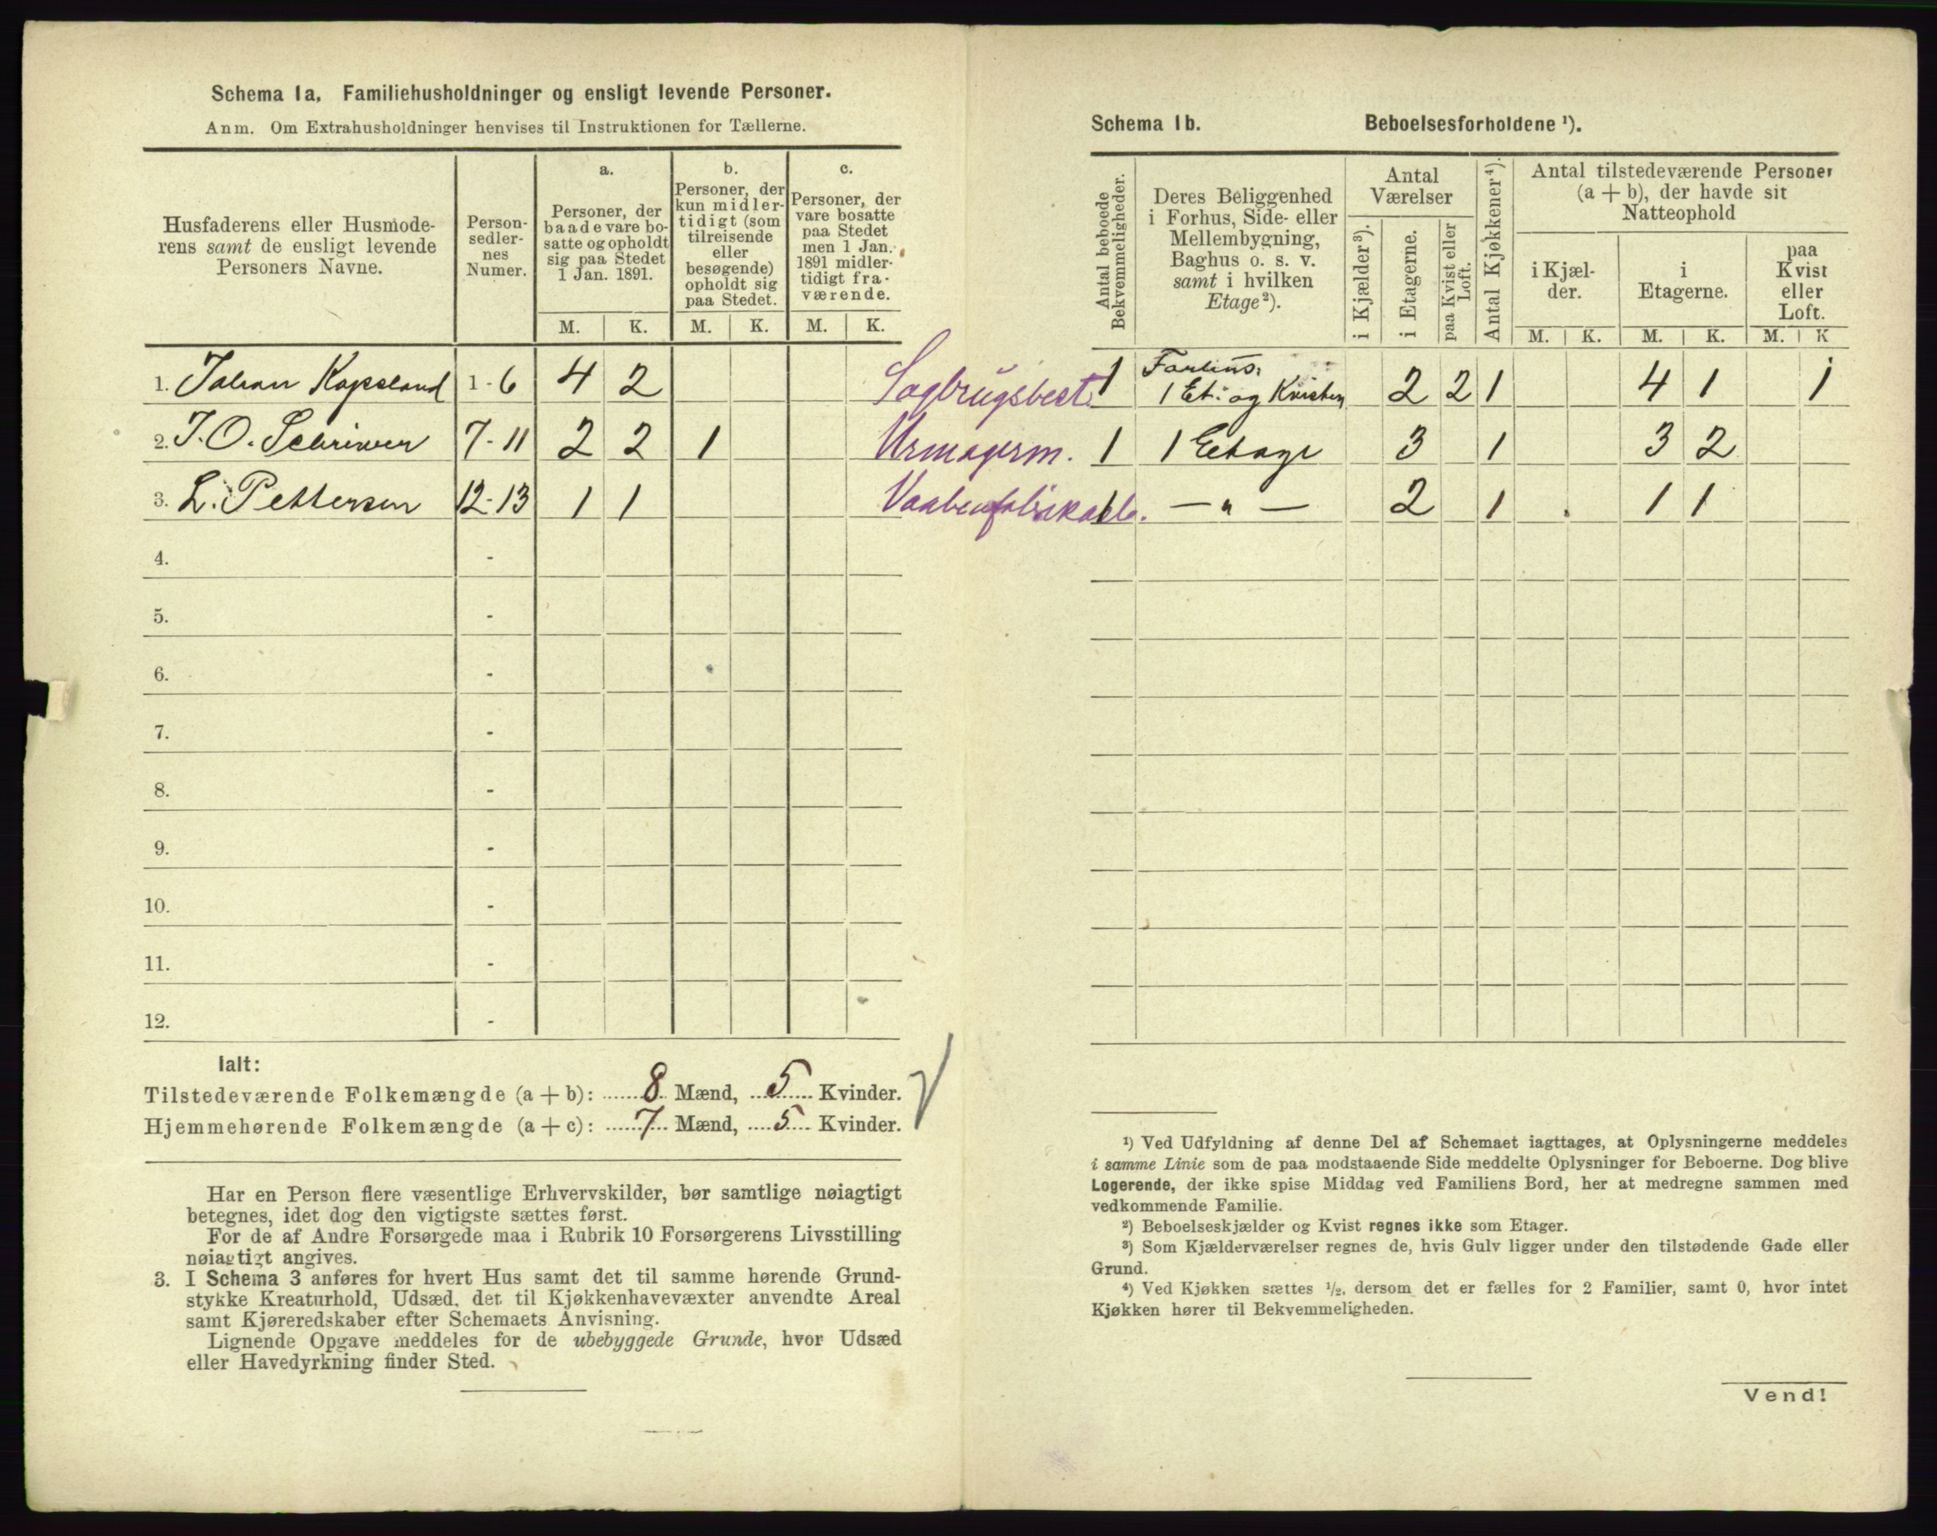 Schema 1a. Familiehusholdninger og ensligt levende Personer.
Anm. Om Extrahusholdninger henvises til Instruktionen for Tællerne.
Husfaderens eller Husmode-
rens samt de ensligt levende
Personers Navne.
Person-
sedler-
nes
Numer.
a.
Personer, der
baade vare bo-
satte og opholdt
sig paa Stedet
1 Jan. 1891.
b.
Personer, der
kun midler-
tidigt (som
tilreisende
eller
besøgende)
opholdt sig
paa Stedet.
c.
Personer, der
vare bosatte
paa Stedet
men 1 Jan.
1891 midler-
tidigt fra-
værende.
M. K. M. K. M. K.
1. Johan Kopsland 1-6 4 2 Sagbrugsbest.
2. J. O. Schriwer 7-11 2 2 1 Urmagerm.
3. L. Pettersen 12-13 1 1 Vaabenfabrikarb.
4. -
5. -
6. -
7. -
8. -
9. -
10. -
11. -
12. -
Ialt:
Tilstedeværende Folkemængde (a + b): 8 Mænd, 5 Kvinder.
Hjemmehørende Folkemængde (a + c): 7 Mænd, 5 Kvinder.
Har en Person flere væsentlige Erhvervskilder, bør samtlige nøiagtigt
betegnes, idet dog den vigtigste sættes først.
For de af Andre Forsørgede maa i Rubrik 10 Forsørgerens Livsstilling
nøiagtigt angives.
3. I Schema 3 anføres for hvert Hus samt det til samme hørende Grund-
stykke Kreaturhold, Udsæd, det til Kjøkkenhavevæxter anvendte Areal
samt Kjøreredskaber efter Schemaets Anvisning.
Lignende Opgave meddeles for de ubebyggede Grunde, hvor Udsæd
eller Havedyrkning finder Sted.
Schema 1b. Beboelsesforholdene ¹).
Antal beboede
Bekvemmeligheder.
Deres Beliggenhed
i Forhus, Side- eller
Mellembygning,
Baghus o. s. v.
samt i hvilken
Etage ²).
Antal
Værelser
i Kjælder ³).
i Etagerne.
paa Kvist eller
Loft.
Antal Kjøkkener ⁴).
Antal tilstedeværende Personer
(a + b), der havde sit
Natteophold
i Kjæl-
der.
i
Etagerne.
paa
Kvist
eller
Loft.
M. K. M. K. M. K
1 Forhus, 1 Et. og Kvisten 2 2 1 4 1 1
1 1 Etage 3 1 3 2
1 — „ — 2 1 1 1
¹) Ved Udfyldning af denne Del af Schemaet iagttages, at Oplysningerne meddeles
i samme Linie som de paa modstaaende Side meddelte Oplysninger for Beboerne. Dog blive
Logerende, der ikke spise Middag ved Familiens Bord, her at medregne sammen med
vedkommende Familie.
²) Beboelseskjælder og Kvist regnes ikke som Etager.
³) Som Kjælderværelser regnes de, hvis Gulv ligger under den tilstødende Gade eller
Grund.
⁴) Ved Kjøkken sættes ½, dersom det er fælles for 2 Familier, samt 0, hvor intet
Kjøkken hører til Bekvemmeligheden.
Vend!